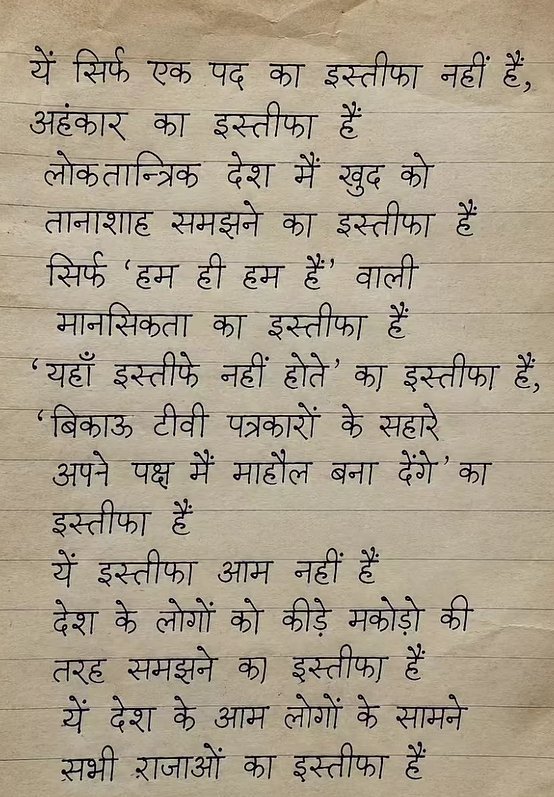 यें सिर्फ एक पद का इस्तीफा नहीं हैं,
अहंकार का इस्तीफा हैं
लोकतान्त्रिक देश मैं खुद को
तानाशाह समझने का इस्तीफा हैं
सिर्फ 'हम ही हम हैं' वाली
मानसिकता का इस्तीफा हैं
'यहाँ इस्तीफे नहीं होते' का इस्तीफा हैं,
'बिकाऊ टीवी पत्रकारों के सहारे
अपने पक्ष मैं माहौल बना देंगे' का
इस्तीफा हैं
यें इस्तीफा आम नहीं हैं
देश के लोगों को कीड़े मकोड़ो की
तरह समझने का इस्तीफा हैं
यें देश के आम लोगों के सामने
सभी राजाओं का इस्तीफा हैं